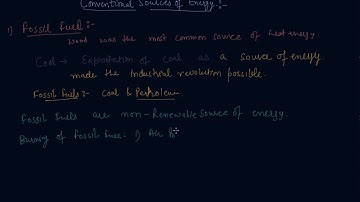 Conventional Sources of Energy :-
1) Fossil Fuel :-
Wood was the most common source of heat energy
Coal → Exploitation of coal as a source of energy
made the Industrial revolution possible.
Fossil fuels :- Coal & Petroleum
Fossil fuels are non-Renewable source of energy.
Burning of fossil fuel : 1) Air Po